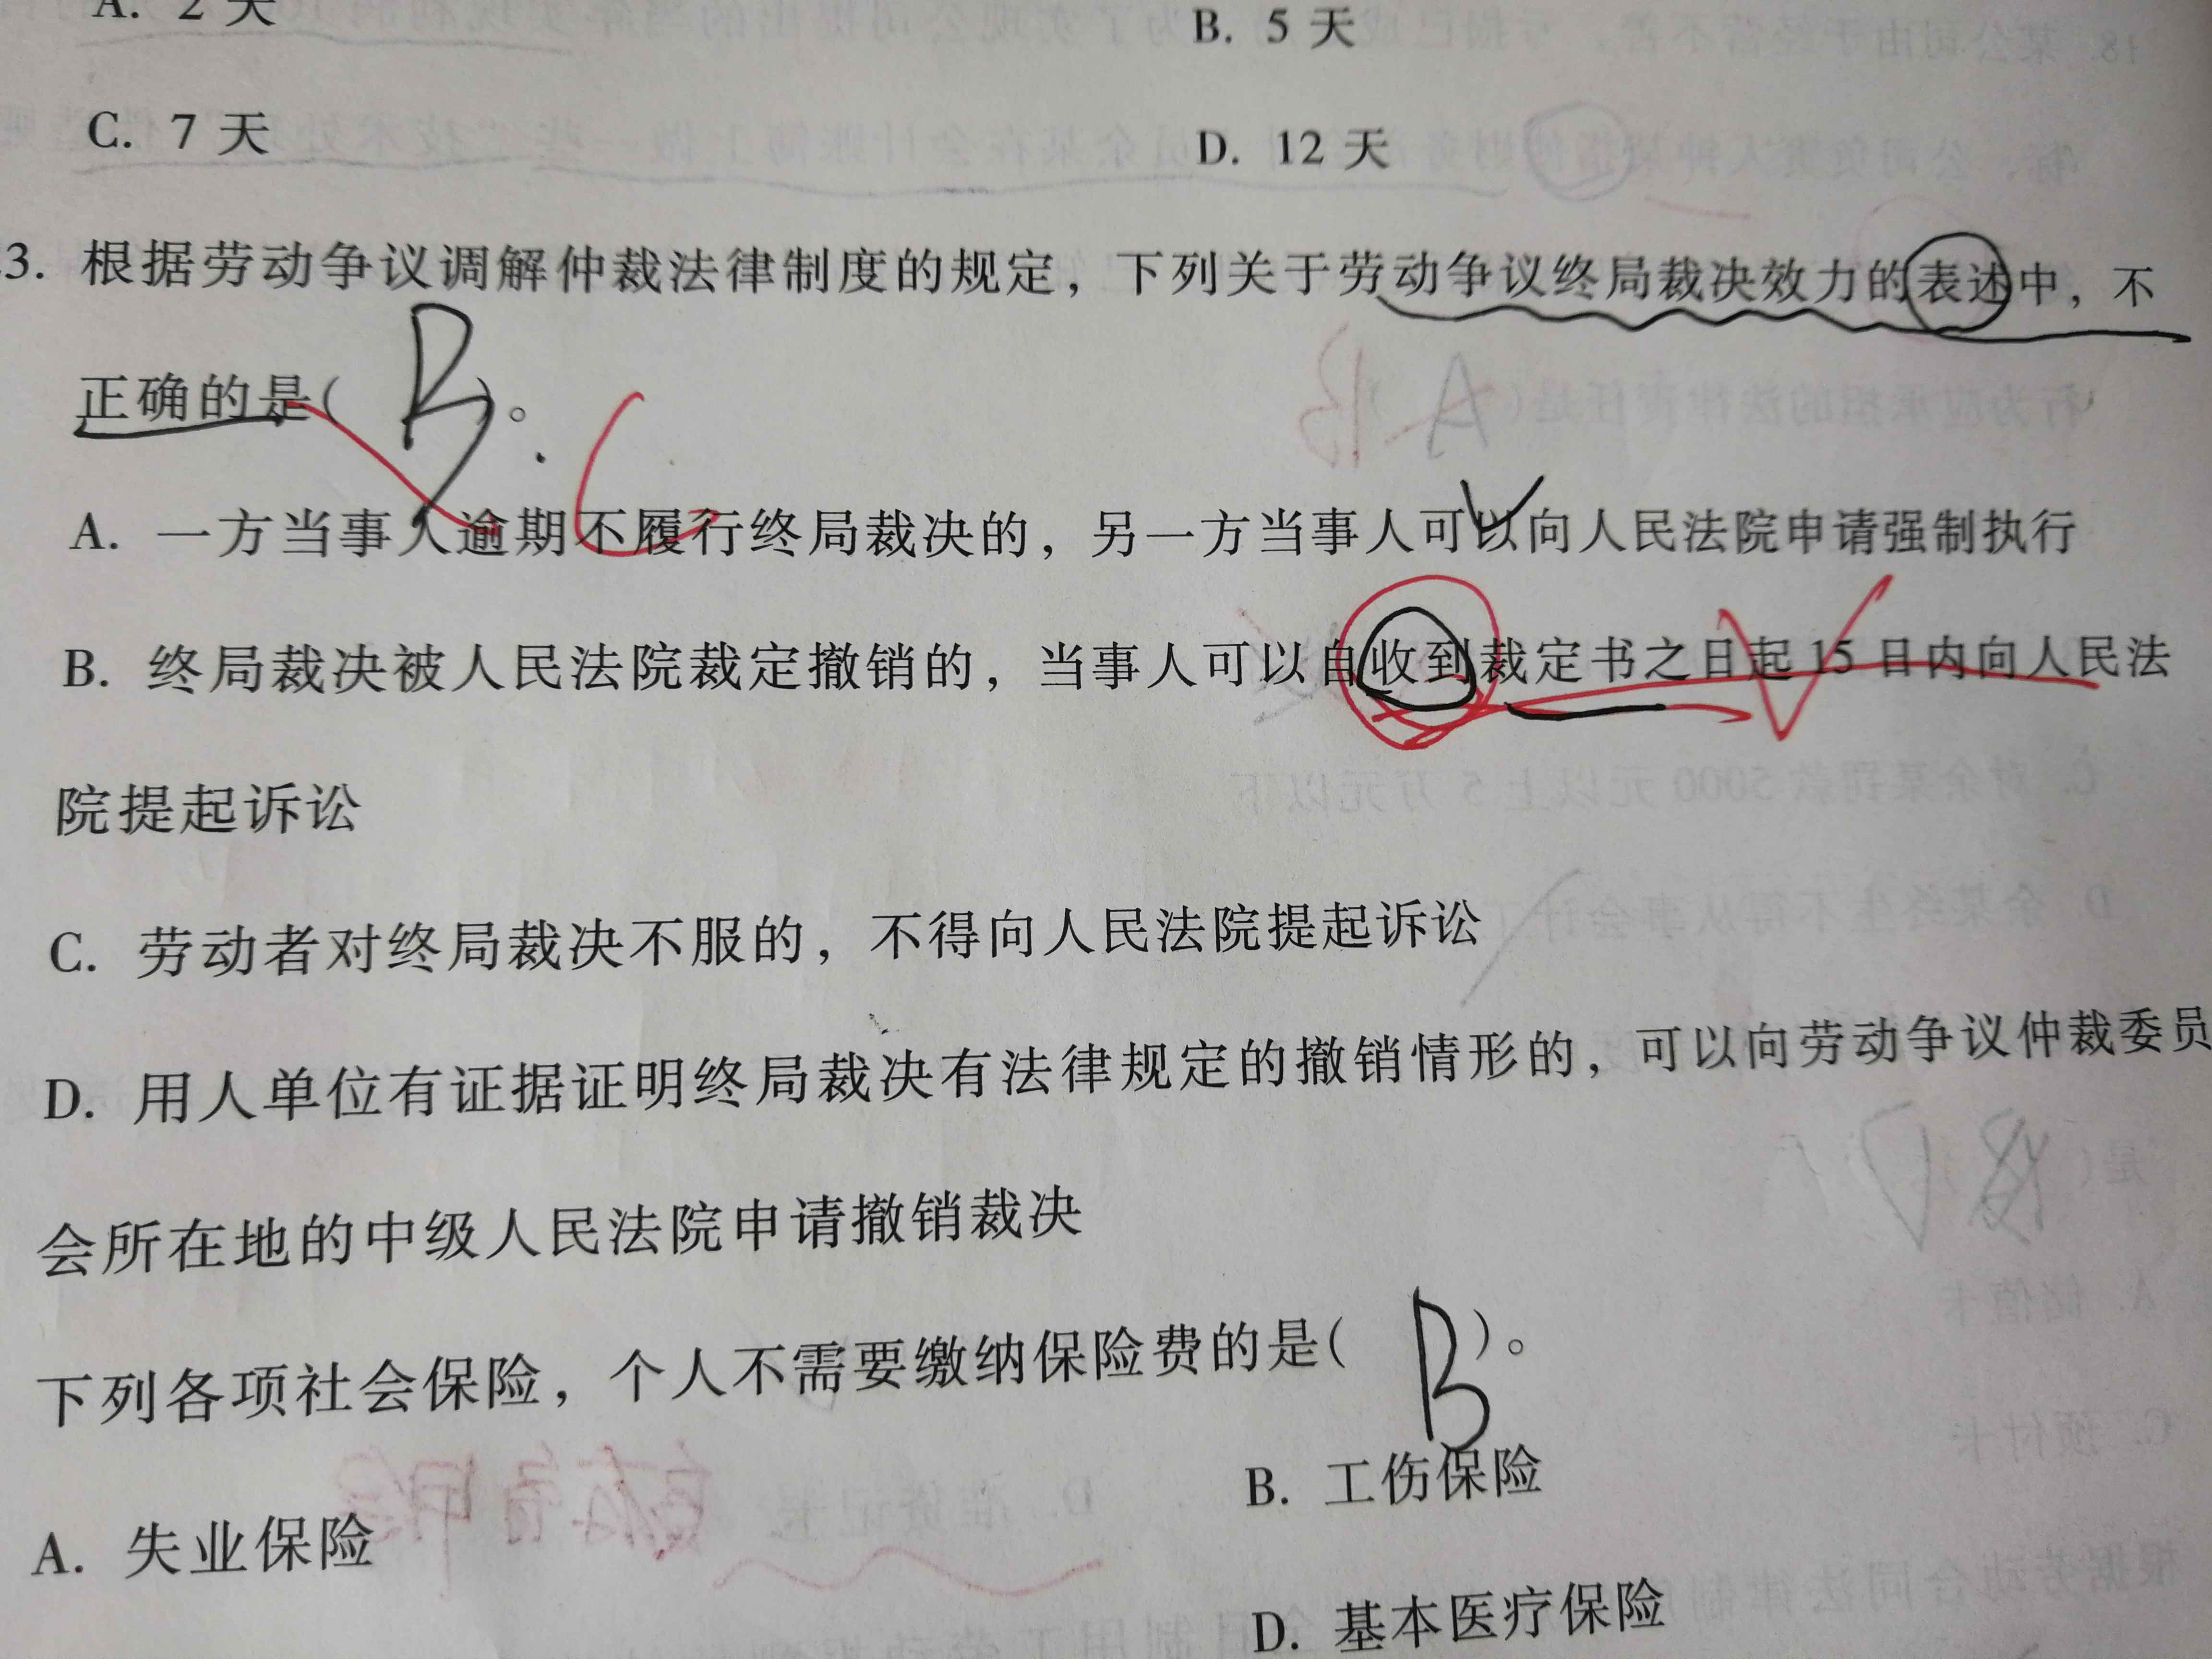 A. 2 天
B. 5 天
C. 7 天
D. 12 天
3. 根据劳动争议调解仲裁法律制度的规定，下列关于劳动争议终局裁决效力的表述中，不
正确的是( B )。 C
A. 一方当事人逾期不履行终局裁决的，另一方当事人可以向人民法院申请强制执行
B. 终局裁决被人民法院裁定撤销的，当事人可以自收到裁定书之日起 15 日内向人民法
院提起诉讼
C. 劳动者对终局裁决不服的，不得向人民法院提起诉讼
D. 用人单位有证据证明终局裁决有法律规定的撤销情形的，可以向劳动争议仲裁委员
会所在地的中级人民法院申请撤销裁决
下列各项社会保险，个人不需要缴纳保险费的是( B )。
A. 失业保险
B. 工伤保险
D. 基本医疗保险